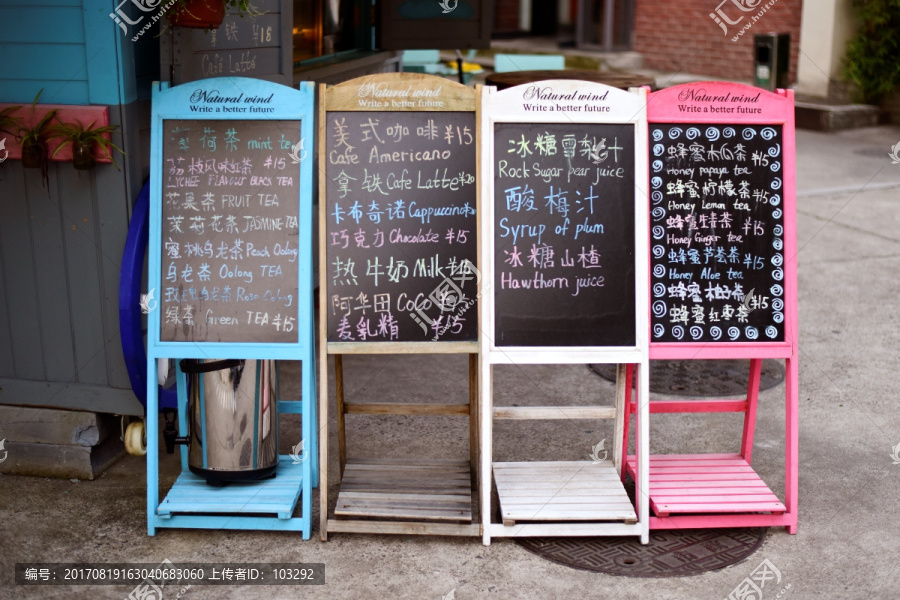 拿铁 ¥18
Cafe Latte
Natural wind
Write a better future
薄荷茶 mint tea
荔枝风味红茶 ¥15
LYCHEE FLAVOUT BLACK TEA
花果茶 FRUIT TEA
茉莉花茶 JASMINE TEA
蜜桃乌龙茶 Peach Oolong
乌龙茶 Oolong TEA
玫瑰乌龙茶 Rose Oolong
绿茶 Green TEA ¥15
Natural wind
Write a better future
美式咖啡 ¥15
Cafe Americano
拿铁 Cafe Latte ¥20
卡布奇诺 Cappuccino ¥20
巧克力 Chocolate ¥15
热牛奶 Milk ¥
阿华田 CoCo
麦乳精 ¥15
Natural wind
Write a better future
冰糖雪梨汁
Rock Sugar pear juice
酸梅汁
Syrup of plum
冰糖山楂
Hawthorn juice
Natural wind
Write a better future
蜂蜜木瓜茶 ¥15
Honey papaya tea
蜂蜜柠檬茶 ¥15
Honey Lemon tea
蜂蜜生姜茶 ¥15
Honey Ginger tea
蜂蜜芦荟茶 ¥15
Honey Aloe tea
蜂蜜柚子茶 ¥15
蜂蜜红枣茶 ¥15
编号：20170819163040683060 上传者ID：103292